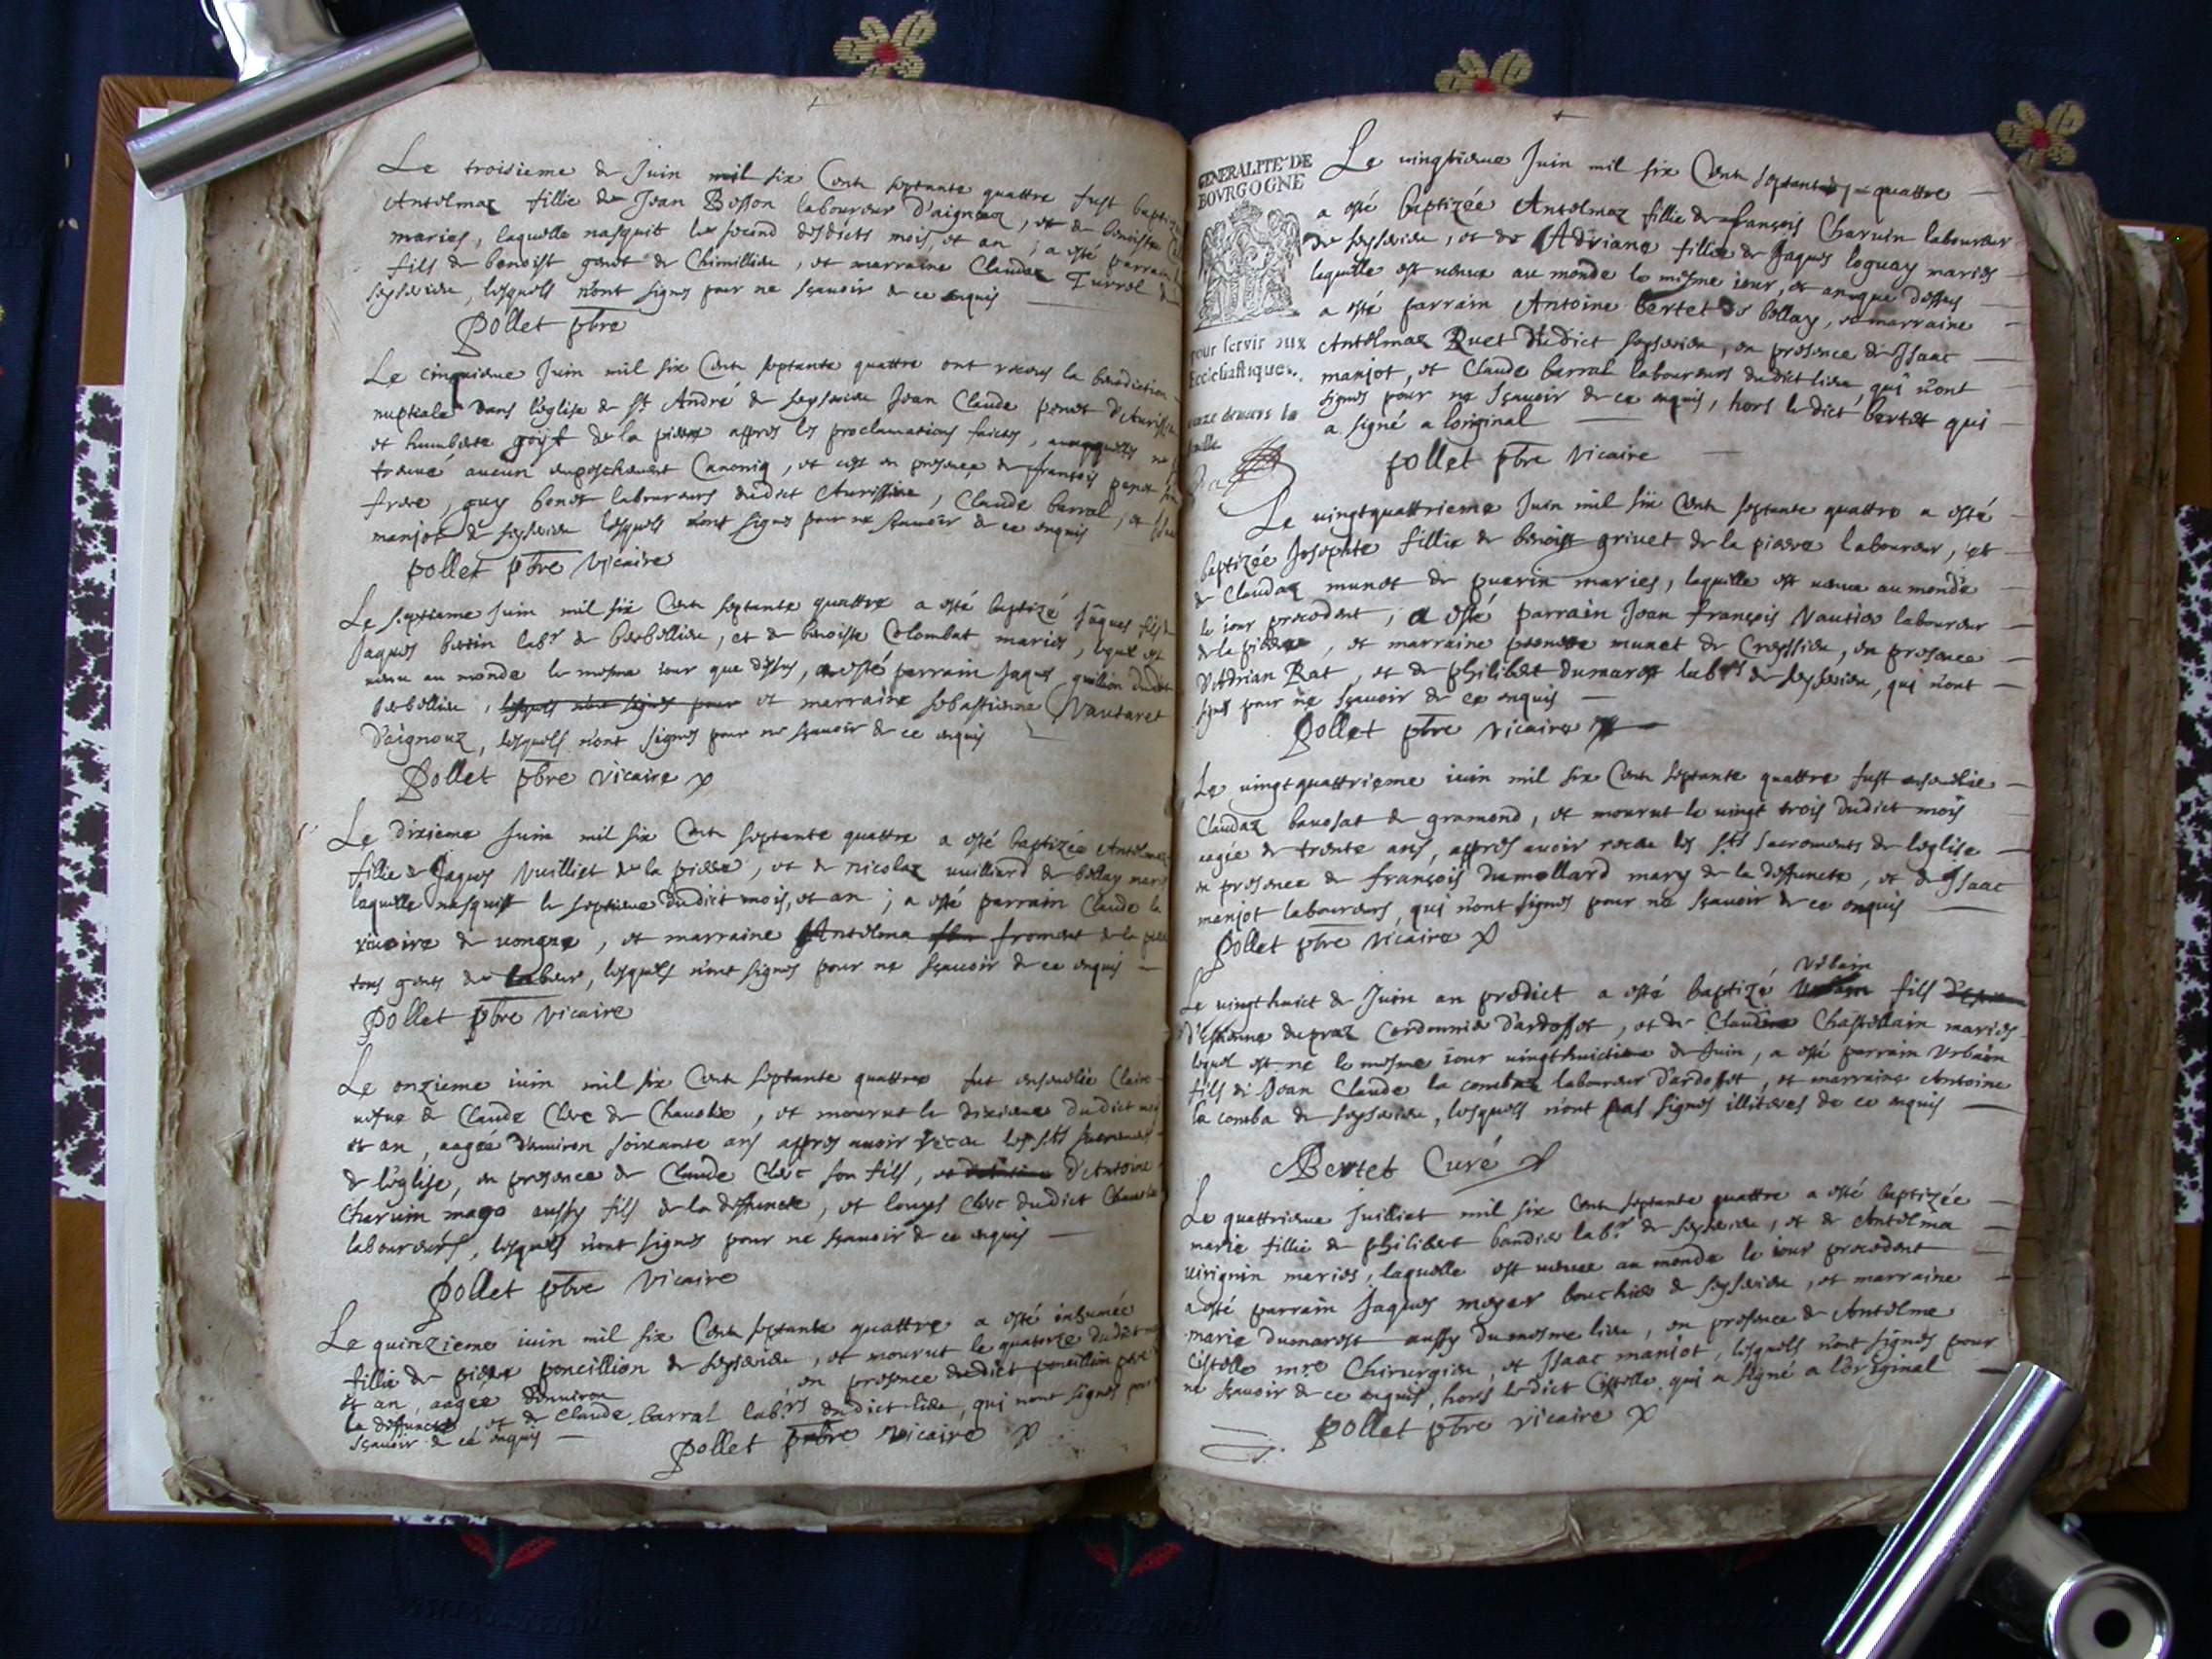 Le troisieme de Juin mil six Cents septante quattre fust baptizé
Antelmaz fillie de Jean Bosson laboureur d'aignoz, et de benoiste
mariés, laquelle nasquit le second desdicts mois, et an, a esté parrain
fils de benoist genot de Chimillieu, et marraine Claudaz Turrel de
seyssieu, lesquels n'ont signés pour ne sçavoir de ce enquis
Pollet pbre
Le cinquieme Juin mil six Cents septante quattre ont receus la benediction
nuptiale dans l'eglise de St André de seyssieu Jean Claude penet
et humberte goyt de la pierre appres les proclamations faictes, ne
treuué aucun empeschement Canoniq, et c'est en presence de françois penet
frere, guy benet laboureurs dudict, Claude barral, et
manjot de seyssieu lesquels n'ont signés pour ne sçavoir de ce enquis
pollet pbre vicaire
Le septieme Juin mil six Cents septante quattre a esté baptizé Jaques fils de
Jaques bertin labr de berbellieu, et de benoiste Colombat mariés, lequel est
nasu au monde le mesme iour que dessus, a esté parrain Jaques guillion dudict
berbellieu, lesquels n'ont signés pour et marraine sebastienne Vautaret
D'aignouz, lesquels n'ont signés pour ne sçavoir de ce enquis
Pollet pbre vicaire
Le dixieme Juin mil six Cents septante quattre a esté baptizée Antelmaz
fillie de Jaques Vuilliet de la pierre, et de nicolaz vuilliard de bellay mariés
laquelle nasquist le septieme dudict mois, et an ; a esté parrain Claude la
de uongne, et marraine Antelma froment de la pierre
tous gents de labeur, lesquels n'ont signés pour ne sçavoir de ce enquis
Pollet pbre vicaire
Le onzieme iuin mil six Cents septante quattre fut enseuelie Claire
uefue de Claude Clerc de Chauolée, et mourut le dixieme dudict mois
et an, aagée d'enuiron soixante ans appres auoir receu les sts sacrements
de l'eglise, en presence de Claude Clerc son fils, d'Antoine
Charuin mago aussy fils de la deffuncte, et louys Clerc dudict
laboureurs, lesquels n'ont signés pour ne sçavoir de ce enquis
Pollet pbre vicaire
Le quinzieme iuin mil six Cents septante quattre a esté inhumée
fillie de pierre poncillion de seyssieu, et mourut le quatorze dudict mois
et an, aagee d'enuiron, en presence dudict poncillion pere
la deffuncte, et de Claude barral labrs dudict lieu, qui n'ont signés pour
sçavoir de ce enquis
Pollet pbre vicaire
GENERALITE DE
BOVRGOGNE
pour servir aux
Ecclesiastiques.
onze deniers la
feuille
Le vingtieme Juin mil six Cents septante quattre
a esté baptizée Antelmaz fillie de françois Charuin laboureur
de seyssieu, et de Adriane fillie de Jaques loguay mariés
laquelle est uenue au monde le mesme iour, et an que dessus
a esté parrain Antoine bertet de bellay, et marraine
Antelmaz Ruet dudict seyssieu, en presence de Isaac
manjot, et Claude barral laboureurs dudict lieu, qui n'ont
signés pour ne sçavoir de ce enquis, hors ledict bertet qui
a signé a loriginal
pollet pbre vicaire
Le vingtquattrieme Juin mil six Cents septante quattre a esté
baptizée Josephte fillie de benoist griuet de la pierre laboureur, et
de Claudaz munet de puerin mariés, laquelle est uenue au monde
le iour precedent ; a esté parrain Jean françois Nautier laboureur
de la pierre, et marraine munet de Creyssieu, en presence
D'Adrian Rat, et de philibert dumarest labrs de seyssieu, qui n'ont
signés pour ne sçavoir de ce enquis
Pollet pbre vicaire
Le vingtquattrieme iuin mil six Cents septante quattre fust enseuelie
Claudaz bauosat de gramond, et mourut le vingt trois dudict mois
aagée de trente ans, appres auoir receu les sts sacrements de leglise
en presence de françois dumollard mary de la deffuncte, et de Isaac
manjot laboureurs, qui n'ont signés pour ne sçavoir de ce enquis
Pollet pbre vicaire
Vrbain
Le vingthuict de Juin an predict a esté baptizé fils
d'Estienne dupraz Cordonnier d'ardosset, et de Claudine Chastellain mariés
lequel est né le mesme iour vingthuictieme de Juin, a esté parrain Vrbain
fils de Jean Claude la combaz laboureur d'ardosset, et marraine Antoine
la comba de seyssieu, lesquels n'ont pas signés illiteres de ce enquis
Bertet Curé
Le quattrieme Juilliet mil six Cents septante quattre a esté baptizée
marie fillie de philibert baudier labr de seyssieu, et de Antelma
uirignin mariés, laquelle est uenue au monde le iour precedent
a esté parrain Jaques moyer bouchier de seyssieu, et marraine
marie dumarest aussy du mesme lieu, en presence de Antelme
Cistelle mre Chirurgien, et Isaac manjot, lesquels n'ont signés pour
ne sçavoir de ce enquis, hors ledict Cistelle qui a signé a l'original
Pollet pbre vicaire